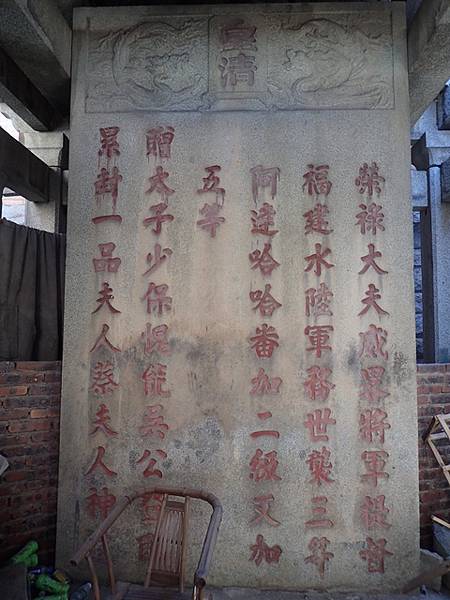 皇清
榮祿大夫威畧將軍提督
福建水陸軍務世襲三等
阿達哈哈番加二級又加
五等
贈太子少保諡能吳公
累封一品夫人蔡夫人神